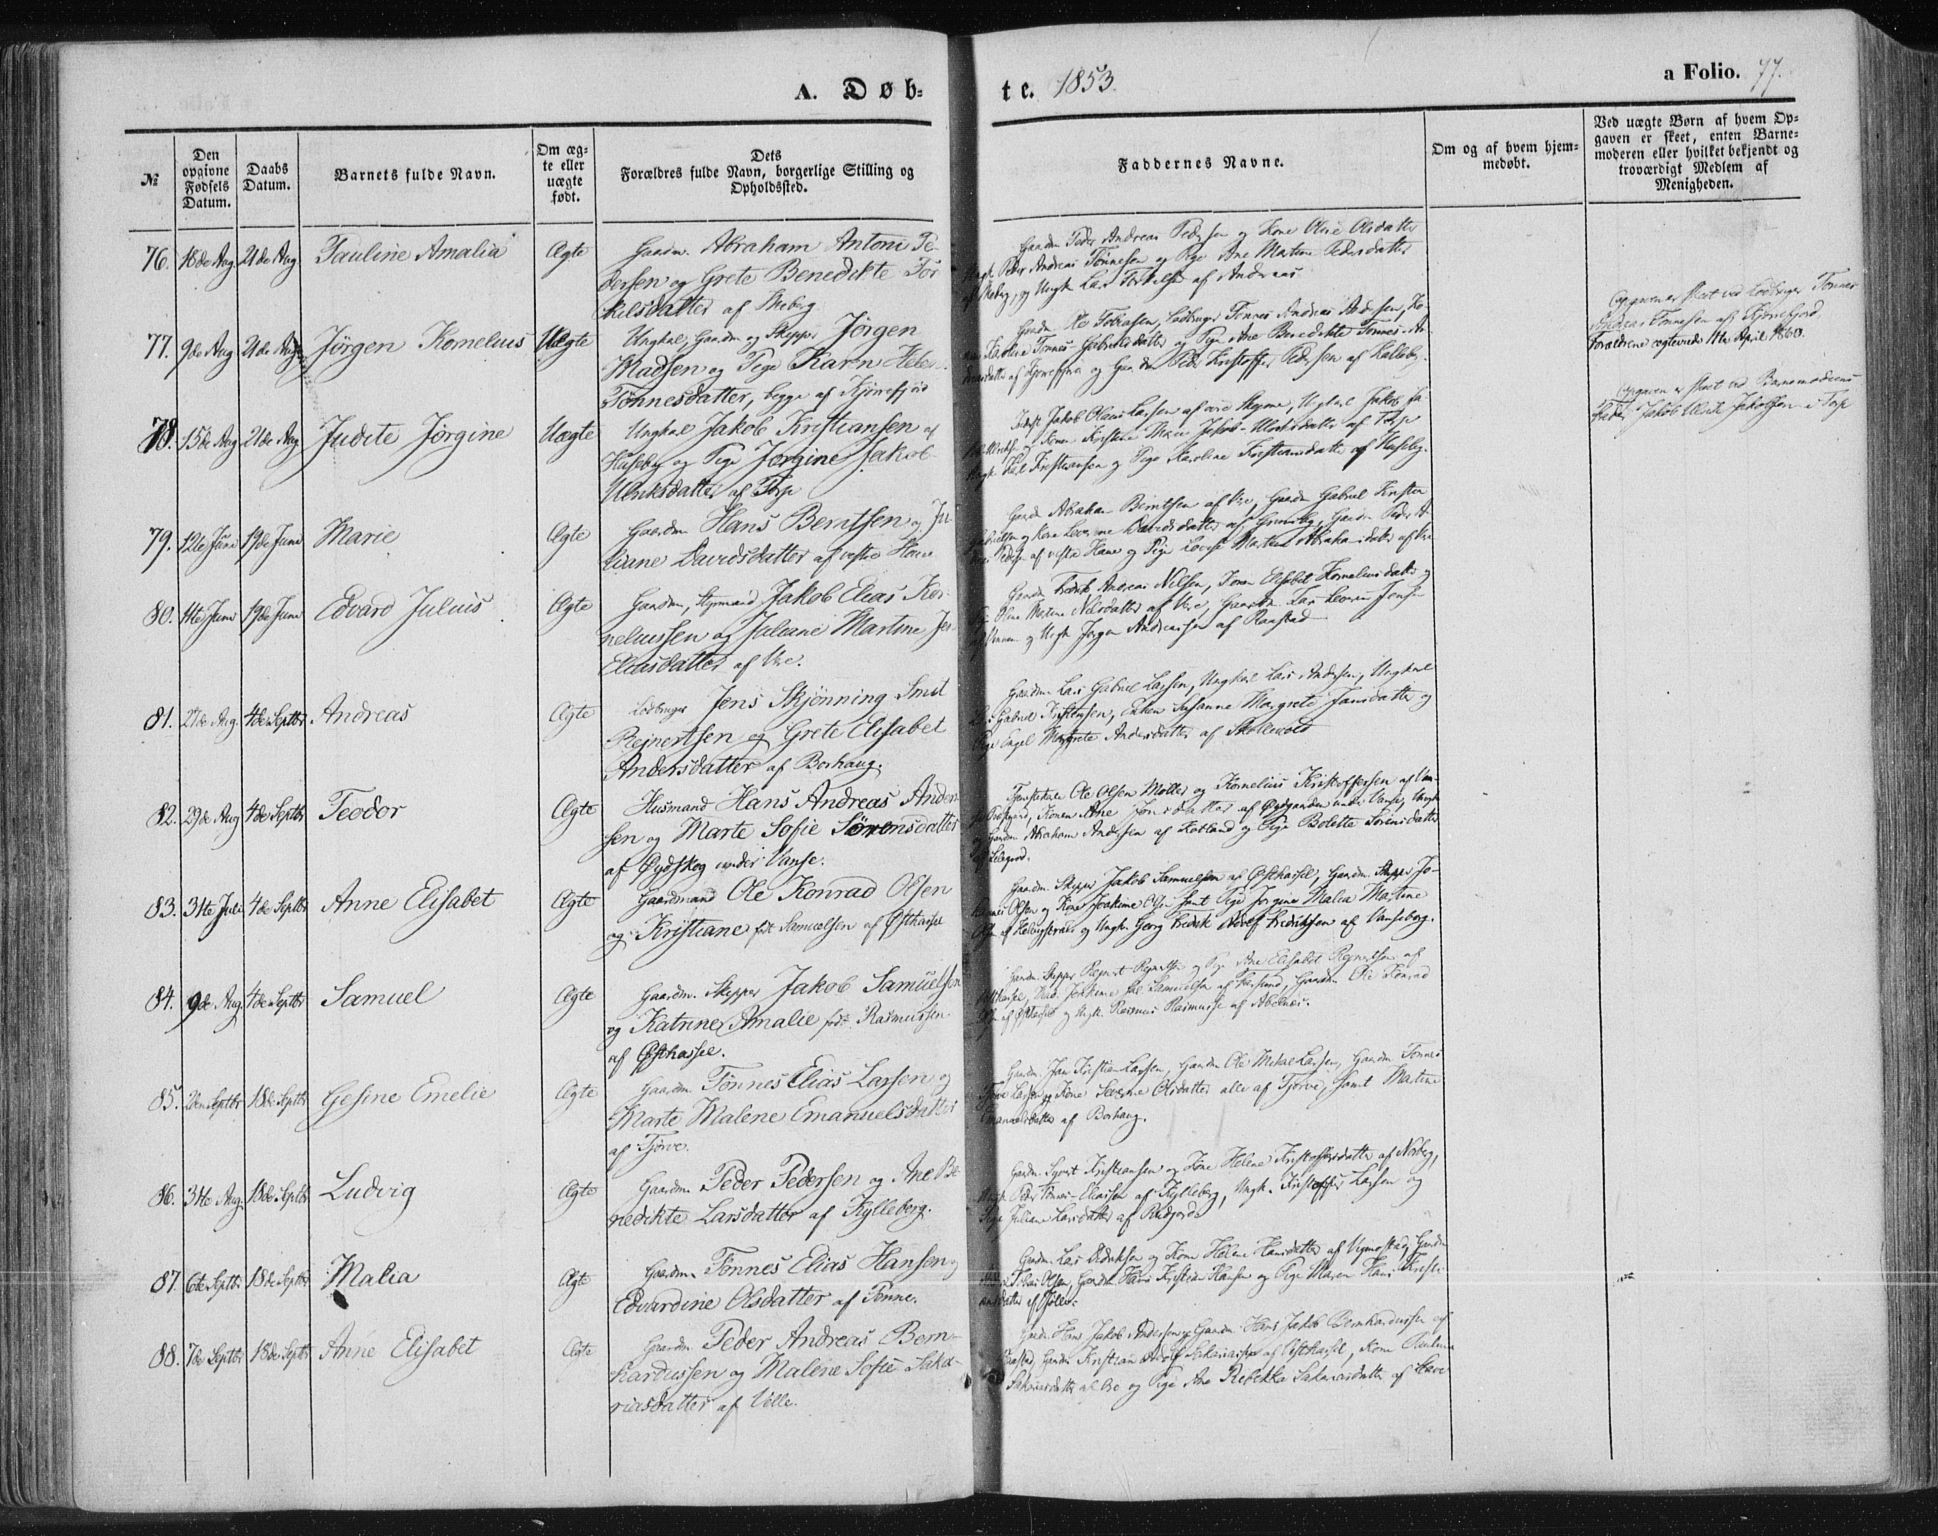 A. Døb-
te. 1853.
a Folio. 77.
№
Den opgivne Fødsels Datum.
Daabs Datum.
Barnets fulde Navn.
Om ægte eller uægte født.
Dets Forældres fulde Navn, borgerlige Stilling og Opholdssted.
Faddernes Navne.
Om og af hvem hjemmedøbt.
Ved uægte Børn af hvem Opgaven er skeet, enten Barnemoderen eller hvilket bekjendt og troværdigt Medlem af Menigheden.
76. 18de Aug 21de Aug Pauline Amalia Ægte Gaardm. Abraham Antoni Pe-
dersen og Grete Benedikte Tor
kelsdatter af
Gaardm Peder Andreas Pedersen og Kone Olene Olsdatter
Ungk. Peder Andreas Tønnesen og Pige Ane Martine Pedersdatter
og Ungk Lars Torkelsen af Andreas
77. 9de Aug 21de Aug Jörgen Kornelius Uægte Ungkarl, Gaardm og Skipper Jörgen
Madsen og Pige Karn Helene
Tönnesdatter, begge af Kjörrefjord
Gaardm Ole Tobiasen, Lodbruger Tönnes Andreas Andersen, Ko-
Karoline Tonnes-Gabrielsdatter og Pige Ane Benedikte Tonnes-An-
dreasdatter af og Gaardm Peder Kristoffer Pedersen af
Opgaven er skeet ved Lodbruger Tönnes
Andreas Tönnesen af Kjörrefjord
Forældrene ægteviede 11te April 1860.
78. 15de Aug 21de Aug Judite Jörgine Uægte Ungkarl Jakob Kristiansen af
Huseby og Pige Jorgine Jakob-
Ulriksdatter af Torp
Jakob Olaus Larsen af Ungkarl Jakob
Kone Kristine Marie Jakob-Ulriksdatter af Torp
Ungk. Karl Kristiansen og Pige Karoline Kristiansdatter af Huseby.
Opgaven er skeet ved Barnemoderens
Fader, Jakob Ulrik Jakobsen i Torp
79. 12te Juni 19de Juni Marie Ægte Gaardm Hans Berntsen og Ju-
liane Davidsdatter af vestre Hane
Gaardm Abraham Berntsen af Vre, Gaardm Gabriel Kristen
og Kone Davidsdatter af Gaardm Peder
Pedersen af vestre Hane og Pige Lovise Martine Abrahamsdatter af Vre
80. 14de Juni 19de Juni Edvard Julius Ægte Gaardm, Jakob Elias Kor-
neliussen og Juliane Martine Jens
Eliasdatter af Vre.
Gaardm Fredrik Andreas Nilsen, Kone Elisabet Korneliusdatter og
Pige Oline Martine Nilsdatter af Vre, Gaardm Jensen
og Ungk Jörgen Andreassen af Ranstad
81. 27de Aug. 4de Septbr Andreas Ægte Lodbruger Jens Skjönning Smit
Reinertsen og Grete Elisabet
Andersdatter af Borhaug.
Gaardm Lars Gabriel Larsen, Ungkarl Lars Andersen, Ungkarl
Gabriel Kristensen, Enken Susanne Margrete Jansdatter og
Pige Engel Margrete Andersdatter af Skollevold
82. 29de Aug 4de Septbr Teodor Ægte Husmand Hans Andreas Ander-
sen og Marte Sofie Sörensdatter
af Øydskog under Vanse.
Tjenestekarl Ole Olsen Moller og Kornelius Kristoffersen af Van-
Konen Ane Jonsdatter af Øydgarden under Vanse, Ungk
Gaardm Abraham Andersen af Kotland og Pige Bolette Sörensdatter
83. 31te Juli 4de Septbr Anne Elisabet Ægte Gaardmand Ole Konrad Olsen
og Kristiane født Samuelsen af Østhassel
Gaardm Skipper Jakob Samuelsen af Østhassel, Gaardm Skipper To-
Olsen og Kone Joakime Olsen samt Pige Jorgine Malia Martine
Olsen af Helvigstranden og Ungk. Georg Fredrik Adolf Fredriksen af Vanseborg.
84. 9de Aug. 4de Septbr Samuel Ægte Gaardm. Skipper Jakob Samuelsen
og Katrine Amalie født Rasmussen
af Østhassel.
Gaardm Skipper Reinert Reinertsen og Pige Ane Elisabet Reinertsen af
Østhassel, Joakime Samuelsen af Farsund, Gaardm Ole Konrad
Olsen af Østhassel og Ungk. Rasmus Rasmussen af Abelnæs.
85. 2den Septbr 18de Septbr Gesine Emelie Ægte Gaardm Tönnes Elias Larsen og
Marte Malene Emanuelsdatter
af Tjörve.
Gaardm Jan Kristian Larsen, Gaardm Ole Mikal Larsen, Gaardm Tönnes
Larsen og Kone Severine Olsdatter alle af Tjörve, samt Martine
Emanuelsdatter af Borhaug.
86. 31te Aug. 18de Septbr Ludvig Ægte Gaardm Peder Pedersen og Ane Be-
nedikte Larsdatter af Kylleberg.
Gaardm Syvert Kristiansen og Kone Helene Kristoffersdatter af Norberg,
Ungk Peder Tönnes-Eliassen af Kylleberg, Ungk. Kristoffer Larsen og
Pige Juliane Larsdatter af Rudjord
87. 6te Septbr 18de Septbr Malia Ægte Gaardm. Tönnes Elias Hansen og
Edvardine Olsdatter af Tonne.
Gaardm Lars Didriksen og Kone Helene Hansdatter af Vigmostad, Gaardm
Tobias Olsen, Gaardm Hans Kristian Hansen og Pige Maren Hans Kristi-
ansdatter af
88. 7de Septbr 18de Septbr Anne Elisabet Ægte Gaardm Peder Andreas Bern-
hardussen og Malene Sofie Saka-
riasdatter af Velle.
Gaardm Hans Jakob Andersen, Gaardm Hans Jakob Bernhardussen af
Gaardm Kristian Adolf Sakariassen af Østhassel, Kone Paulina
Sakariasdatter af Vre og Pige Ane Rebekka Sakariasdatter af